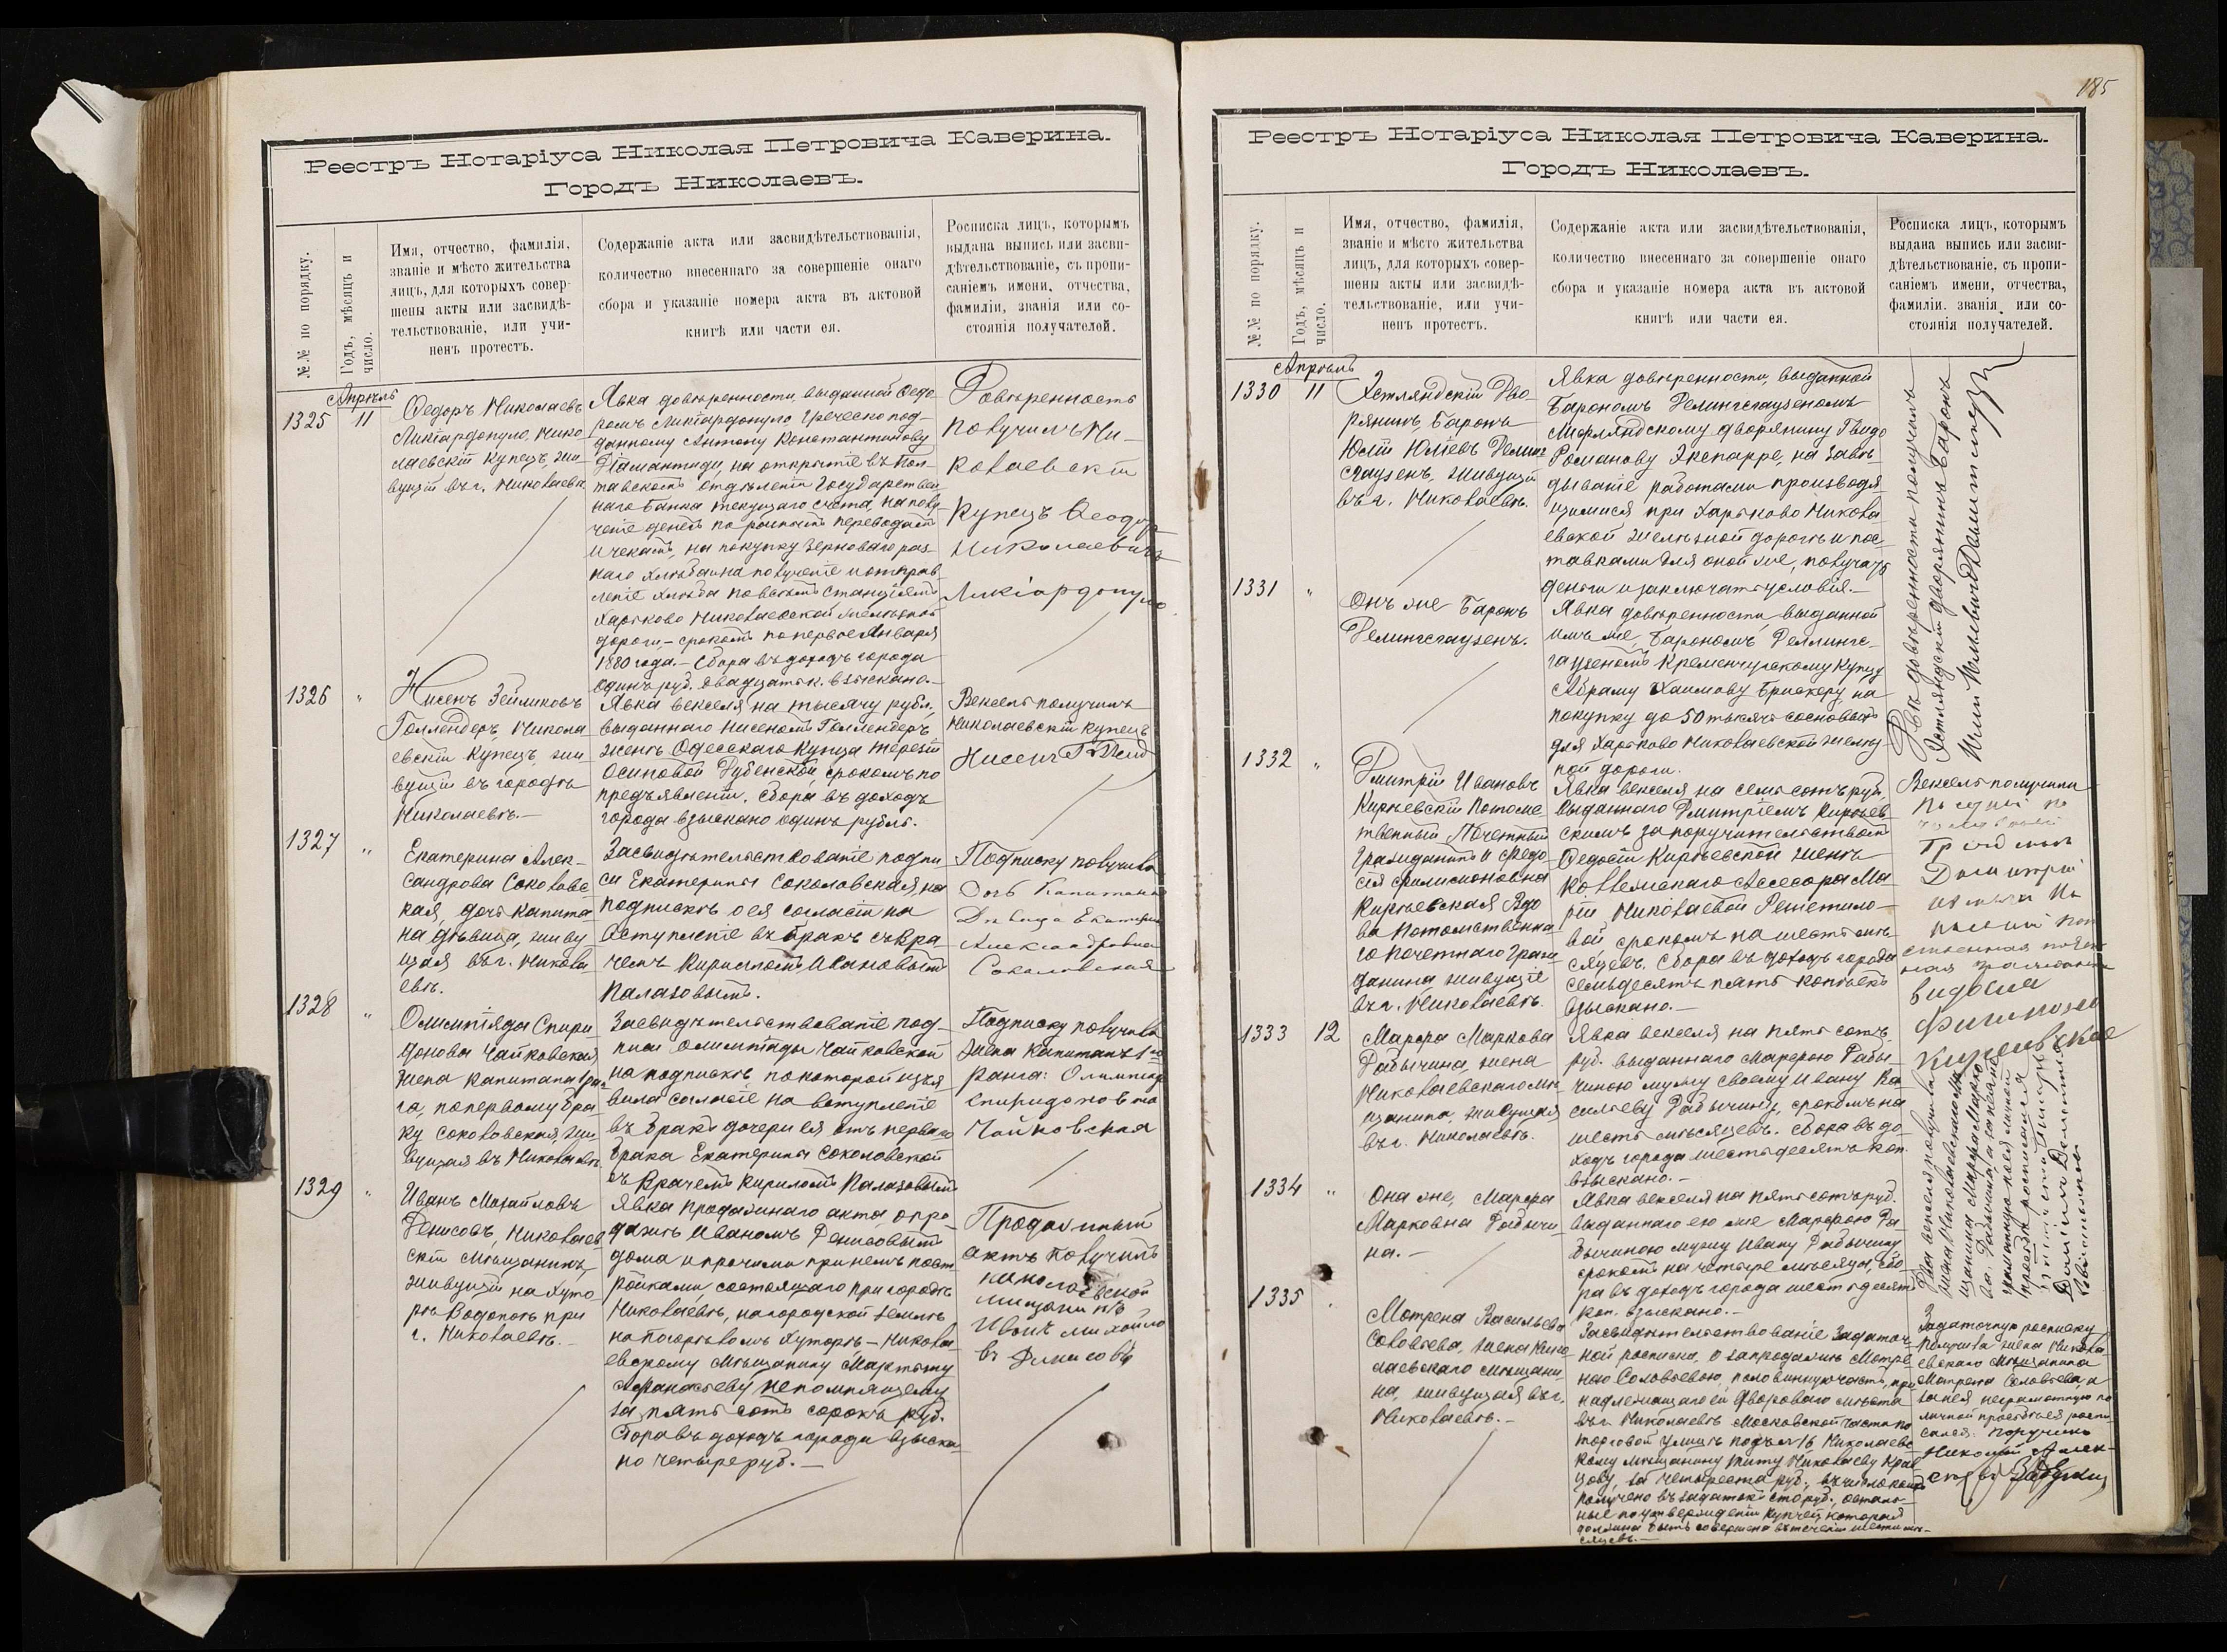 Реестръ Нотаріуса Николая Петровича Каверина.
Городъ Николаевъ.
№№ по порядку.
Годъ, мѣсяцъ и
число.
Имя, отчество, фамилія,
званіе и мѣсто жительства
лицъ, для которыхъ совер-
шены акты или засвидѣ-
тельствованіе, или учи-
ненъ протестъ.
Содержаніе акта или засвидѣтельствованія,
количество внесеннаго за совершеніе онаго
сбора и указаніе номера акта въ актовой
книгѣ или части ея.
Росписка лицъ, которымъ
выдана выпись или засви-
дѣтельствованіе, съ пропи-
саніемъ имени, отчества,
фамиліи, званія или со-
стоянія получателей.
Апрѣль
1325
11
Ѳедоръ Николаевъ
Ликіардопуло, Нико
лаевскій купецъ, жи
вущій въ г. Николаевѣ
Явка довѣренности, выданной Ѳедо
ромъ Ликіардопуло Греческо под-
данному Антону Константинову
Діамантиди, на открытіе въ Пол-
тавскомъ отдѣленіи Государствен
наго банка текущаго счета, на полу-
ченіе денегъ по
переводамъ
и чекамъ, на покупку зерноваго раз-
наго хлѣба и на полученіе и отправ-
леніе хлѣба по всѣмъ станціямъ
Харьково Николаевской желѣзной
дороги, – срокомъ по первое Января
1880 года. – Сбора въ доходъ города
одинъ руб. двадцать к. взыскано. –
Довѣренность
получилъ Ни-
колаевскій
Купецъ Ѳеодор
Николаевичъ
Ликіардопуло
1326
"
Нисенъ Зейликовъ
Голлендеръ, Никола
евскій купецъ, жи
вущій въ городѣ
Николаевѣ. –
Явка векселя на тысячу рубл.,
выданнаго Нисеномъ Голлендеръ
женѣ Одесскаго купца Терезіи
Осиповой Дубенской, срокомъ по
предъявленіи. Сбора въ доходъ
города взыскано одинъ рубль.
Вексель получилъ
Николаевскій купецъ
Нисенъ
1327
"
Екатерина Алек-
сандрова Соколовс
кая, дочь капита
на дѣвица, живу-
щая въ г. Никола
евѣ.
Засвидѣтельствованіе подпи
си Екатерины Соколовской на
подпискѣ о ея согласіи на
вступленіе въ бракъ съ Вра-
чемъ Кириломъ Ивановымъ
Палазовымъ.
Подписку получила
Дочь Капитана
Дѣвица Екатерин
Александровна
Соколовская
1328
"
Олимпіяда Спири
донова Чайковская
жена капитана 1 ран
га, по первому бра-
ку Соколовская, жи
вущая въ Николаевѣ
Засвидѣтельствованіе под-
писи Олимпіады Чайковской
на подпискѣ по которой изъя
вила согласіе на вступленіе
въ бракъ дочери ея отъ перваго
брака Екатерины Соколовской
съ Врачемъ Кириломъ Палазовымъ
Подписку получила
Жена Капитана 1го
ранга: Олимпіад
Спиридоновна
Чайковская
1329
"
Иванъ Михайловъ
Денисовъ, Николаев
скій мѣщанинъ,
живущій на Хуто
рѣ Водопоѣ при
г. Николаевѣ. –
Явка продажнаго акта, о про-
дажѣ Иваномъ Денисовымъ
дома и прочими при немъ пост-
ройками, состоящаго при городѣ
Николаевѣ, на городской землѣ
на Погорѣломъ Хуторѣ – Никола
евскому мѣщанину Мартыну
Афанасьеву Непомнящему
за пять сотъ сорокъ руб.
Сбора въ доходъ города взыска-
но четыре руб. –
Продажный
актъ получилъ
николаевской
мищани нъ
Иванъ михайло
въ Денисовъ
185
Реестръ Нотаріуса Николая Петровича Каверина.
Городъ Николаевъ.
№№ по порядку.
Годъ, мѣсяцъ и
число.
Имя, отчество, фамилія,
званіе и мѣсто жительства
лицъ, для которыхъ совер-
шены акты или засвидѣ-
тельствованіе, или учи-
ненъ протестъ.
Содержаніе акта или засвидѣтельствованія,
количество внесеннаго за совершеніе онаго
сбора и указаніе номера акта въ актовой
книгѣ или части ея.
Росписка лицъ, которымъ
выдана выпись или засви-
дѣтельствованіе, съ пропи-
саніемъ имени, отчества,
фамиліи, званія или со-
стоянія получателей.
Апрѣль
1330
11
Эстляндскій Дво-
рянинъ, Баронъ
Юлій Юліевъ Делинг
сгаузенъ, живущій
въ г. Николаевѣ.
Явка довѣренности, выданной
Барономъ Делингсгаузеномъ
Лифляндскому дворянину Гвидо
Романову Экспарре, на завѣ-
дываніе работами производя-
щимися при Харьково Никола
евской желѣзной дорогѣ и пос-
тавками для оной же, получать
деньги и заключать условія. –
Двѣ довѣренности получилъ
Эстляндскій дворянинъ Баронъ
1331
"
Онъ же Баронъ
Делингсгаузенъ.
Явка довѣренности, выданной
имъ же, Барономъ Деллингс-
гаузеномъ Кременчугскому купцу
Абраму Хаимову Брискеру, на
покупку до 50 тысячъ сосновыхъ
для Харьково Николаевской желѣз-
ной дороги.
1332
"
Дмитрій Ивановъ
Киріевскій Потомс
твенный Почетный
Гражданинъ и Ѳедо
сія Филимоновна
Киріевская Вдо
ва Потомственна
го почетнаго Граж
данина живущіе
въ г. Николаевѣ.
Явка векселя на семьсотъ руб.
выданнаго Дмитріемъ Киріев-
скимъ за поручительствомъ
Ѳедосіи Киріевской женѣ
Коллежскаго Ассесора Ма-
ріи Николаевой Решетило-
вой, срокомъ на шесть мѣ-
сяцевъ. Сбора въ доходъ города
семьдесятъ пять копѣекъ
взыскано. –
Вексель получили
1333
12
Марфа Маркова
Рабычина, жена
Николаевскаго мѣ
щанина, живущая
въ г. Николаевѣ.
Явка векселя на пять сотъ
руб. выданнаго Марфою Рабы-
чиною мужу своему Ивану Ва
сильеву Рабычину, срокомъ на
шесть мѣсяцевъ. Сбора въ до-
ходъ города шестьдесятъ коп.
взыскано. –
1334
"
Она же, Марфа
Марковна Рабычи
на. –
Явка векселя на пять сотъ руб.
выданнаго ею же Марфою Ра-
бычиною мужу Ивану Рабычину
срокомъ на четыре мѣсяца, сбо
ра въ доходъ города шестьдесятъ
коп. взыскано. –
Два векселя получила
1335
"
Мотрена Васильева
Соловьева, жена Нико
лаевскаго мѣщани-
на, живущая въ г.
Николаевѣ. –
Засвидѣтельствованіе задаточ-
ной росписки, о запродажѣ Мотре-
ною Соловьевою, половинную часть, при
надлежащаго ей дворового мѣста
въ г. Николаевѣ Московской части по
торговой улицѣ подъ № 16 Николаевс
кому мѣщанину Титу Николаеву Крав
цову, за четыреста руб., въ число коихъ
получено въ задатокъ сто руб., осталь-
ные по утвержденіи купчей, которая
должна быть совершена въ теченіи шести мѣ-
сяцевъ. –
Задаточную росписку
получила жена Никола
евскаго мѣщанина
Мотрена Соловьева, а
за нея неграмотную по
личной просьбѣ ея роспи
сался: